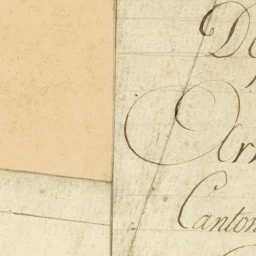 De
Arr
Canton